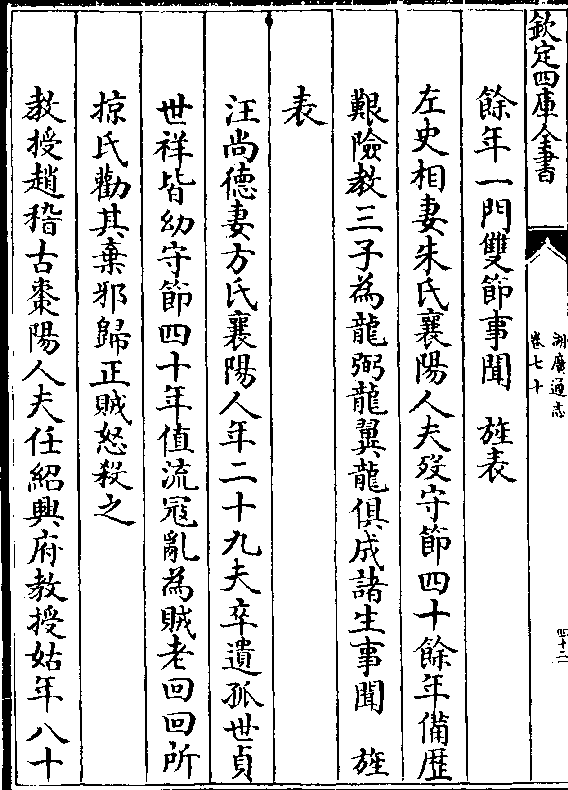 欽定四庫全書
湖廣通志
卷七十
四十二
餘年一門雙節事聞　旌表
左史相妻朱氏襄陽人夫歿守節四十餘年備歴
艱險教三子為龍弼龍翼龍俱成諸生事聞　旌
表
汪尚德妻方氏襄陽人年二十九夫卒遺孤世貞
世祥皆幼守節四十年值流寇亂為賊老回回所
掠氏勸其棄邪歸正賊怒殺之
教授趙稽古棗陽人夫任紹興府教授姑年八十